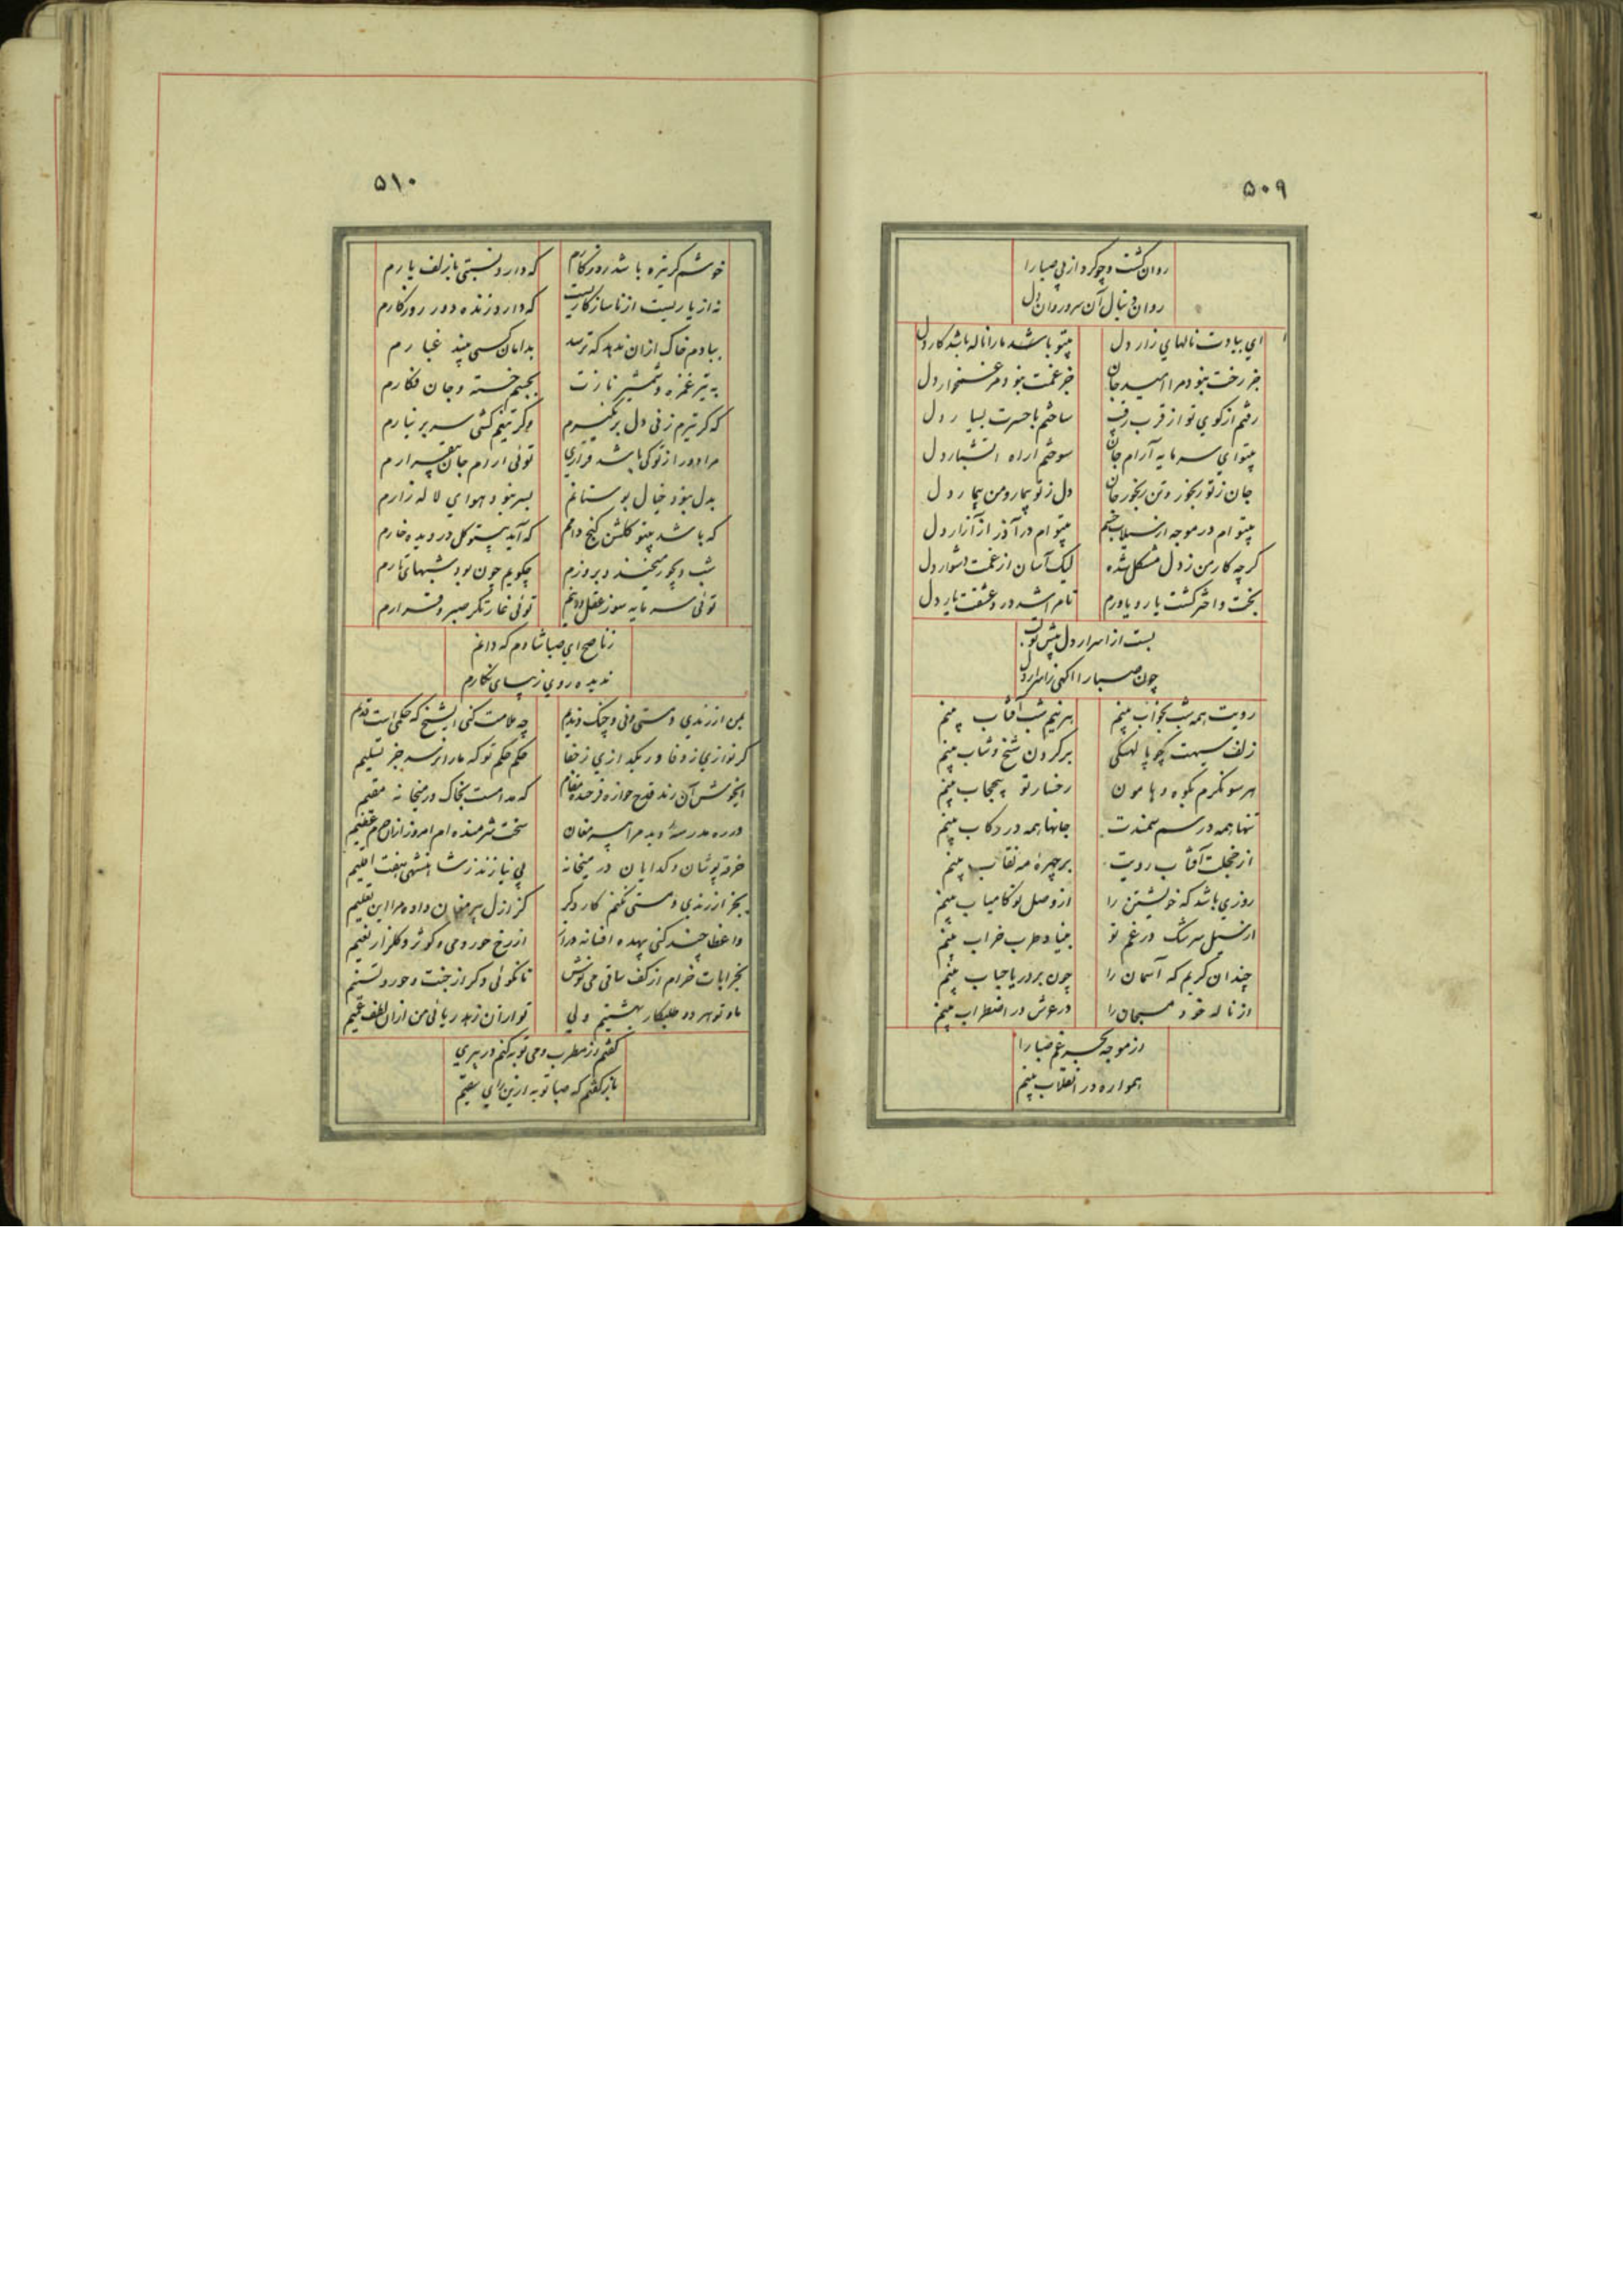 ۵۰۹
روان گشت و چو کرد از پی صبا را
روان دنبال آن سرو روان دل
ای بیادت نالهای زار دل
بیتو باشد مارا ناله باشد کار دل
جز رخت نبود مرا امید جان
جز غمت نبود مر غمخوار دل
رفتم از کوی تو از قرب رقیب
ساختم با حسرت بسیار دل
بیتو ای سرمایه آرام جان
سوختم از آه آتشبار دل
جان ز تو رنجور و تن رنجور جان
دل ز تو بیمار و من بیمار دل
بیتو ام در موجه از سیلاب چشم
بیتو ام در آذر از آزار دل
گرچه کار من ز دل مشکل شده
لیک آسان از غمت دشوار دل
بخت و اختر گشت یار و یاورم
تا مرا شد درد عشقت یار دل
بست از اسرار دل پیش تو لب
چون صبا را آگهی ز اسرار دل
رویت همه شب بخواب بینم
هر نیم شب آفتاب بینم
زلف سیهت چو پالهنگی
بر گردن شیخ و شاب بینم
هر سو نگرم بکوه و هامون
رخسار تو بیحجاب بینم
تنها همه در سم سمندت
جانها همه در رکاب بینم
از خجلت آفتاب رویت
بر چهره مه نقاب بینم
روزی باشد که خویشتن را
از وصل تو کامیاب بینم
از سیل سرشک در غم تو
بنیاد طرب خراب بینم
چندان گریم که آسمان را
چون بر دریا حباب بینم
از ناله خود مسبحان را
در عرش در اضطراب بینم
در موجه بحر غم صبا را
همواره در انقلاب بینم
۵۱۰
خوشم گر تیره باشد روزگارم
که دارد نسبتی با زلف یارم
نه از یاریست از ناسازگاریست
که دارد زنده دور روزگارم
ببادم خاک از آن ندهد که ترسد
بدامان کسی بیند غبارم
به تیر غمزه و شمشیر نازت
بجسم خسته و جان فکارم
که گر تیرم زنی دل بر نگیرم
وگر تیغم کشی سر بر نیارم
مرا دور از تو کی باشد قراری
توئی آرام جان بیقرارم
بدل نبود خیال بوستانم
بسر نبود هوای لاله زارم
که باشد بیتو گلشن کنج دامم
که آید بیتو گل در دیده خارم
شب دیجور میخندد بروزم
چگویم چون بود شبهای تارم
توئی سرمایه سوز عقل و دینم
توئی غارتگر صبر و قرارم
ز ناصح ای صبا شادم که دانم
ندیده روی زیبای نگارم
من از رندی و مستی و نی و چنگ و ندیم
چه ملامت کنی ایشیخ که حکمی است قدیم
گر نوازی ز وفا ور بگدازی ز جفا
حکم حکم تو که ما را نرسد جز تسلیم
ایخوش آن رند قدح خواره فرخنده مقام
که مداست بخاک در میخانه مقیم
در ره مدرسه دید مرا پیر مغان
سخت شرمنده ام امروز از آن جرم عظیم
خرقه پوشان و گدایان در میخانه
بی نیازند ز شاهنشهی هفت اقلیم
بجز از رندی و مستی نکنم کار دگر
کز ازل پیر مغان داده مرا این تعلیم
واعظا چند کنی بیهده افسانه دراز
از رخ حور و می و کوثر و گلزار نعیم
بخرابات خرام از کف ساقی می نوش
تا نگوئی دگر از جنت و حور و تسنیم
ما و تو هر دو طلبکار بهشتیم ولی
تو از آن زهد ریائی من از آن لطف عمیم
گفتم از مطرب و می توبه کنم در پیری
باز گفتم که صبا توبه از این رای سقیم